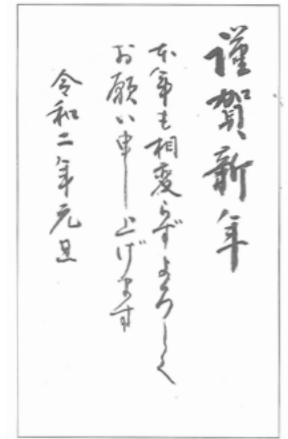 謹賀新年
本年も相変らずよろしく
お願い申し上げます
令和二年元旦